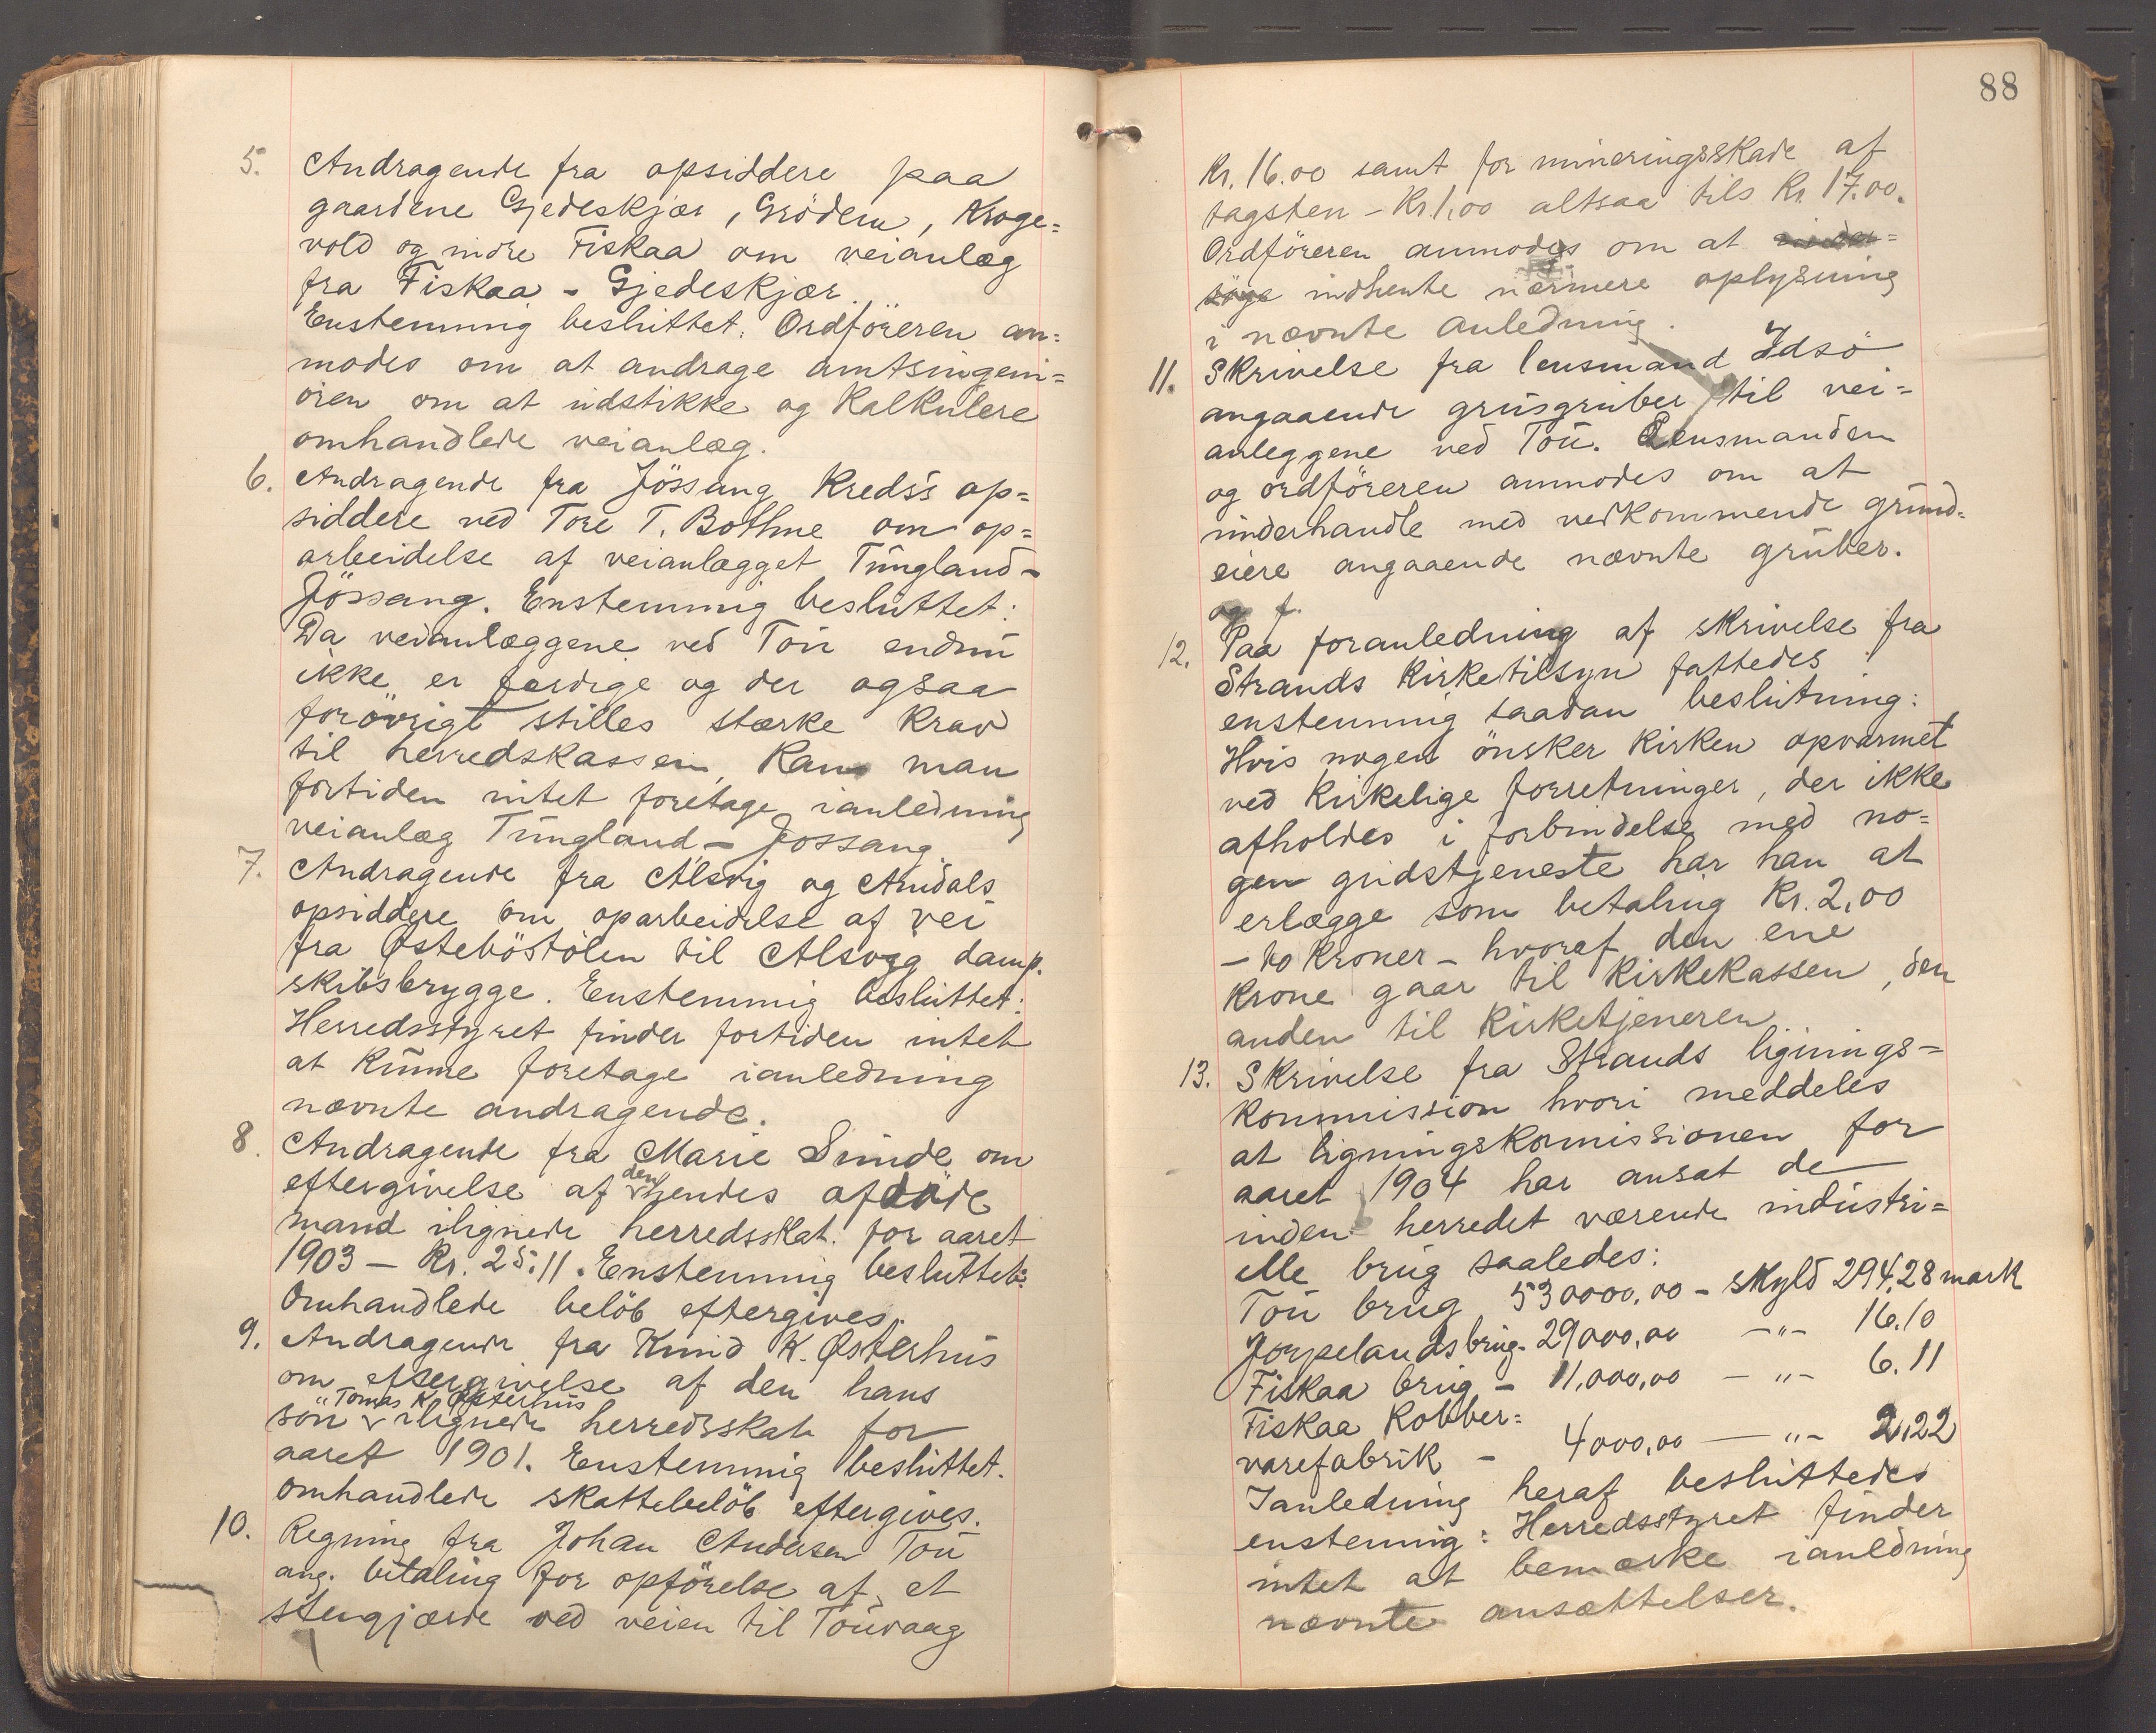 5. Andragende fra opsiddere paa
gaardene Gjedeskjær, Grödem, Kroge=
vold og indre Fiskaa om veianlæg
fra Fiskaa - Gjedeskjær.
Enstemmig besluttet: Ordföreren an=
modes om at andrage amtsingeni=
ören om at udstikke og kalkulere
omhandlede veianlæg.
6. Andragende fra Jössang kreds's op=
siddere ved Tore T. Bothne om op=
arbeidelse af veianlægget Tungland -
Jössang. Enstemmig besluttet:
Da veianlæggene ved Tou endnu
ikke er færdige og der ogsaa
forövrigt stilles stærke krav
til herredskassen, kan man
fortiden intet foretage ianledning
veianlæg Tungland - Jossang.
7. Andragende fra Alsvig og Amdals
opsiddere om oparbeidelse af vei
fra Østeböstölen til Alsvig damp.
skibsbrygge. Enstemmig besluttet:
Herredsstyret finder fortiden intet
at kunne foretage ianledning
nævnte andragende.
8. Andragende fra Marie Sunde om
eftergivelse af den hendes afdöde
mand ilignede herredsskat for aaret
1903 - Kr. 25.11. Enstemmig besluttet:
Omhandlede belöb eftergives.
9. Andragende fra Knud K. Østerhus
om eftergivelse af den hans
"Tomas K. Østerhus
sön ilignede herredsskat for
aaret 1901. Enstemmig besluttet.
Omhandlede skattebelöb eftergives.
10. Regning fra Johan Andersen Tou
ang. betaling for opförelse af et
stengjærde ved veien til Touvaag
88
Kr. 16.00 samt for mineringsskade af
tagsten - Kr. 1,00 altsaa tils Kr. 17.00.
Ordföreren anmodes om at under=
söge indhente nærmere oplysning
i nævnte anledning.
11. Skrivelse fra lensmand Idsö
angaaende grusgruber til vei=
anleggene ved Tou. Lensmanden
og ordföreren anmodes om at
underhandle med vedkommende grund=
eiere angaaende nævnte gruber.
og f.
12. Paa foranledning af skrivelse fra
Strands kirketilsyn fattedes
enstemmig saadan beslutning:
Hvis nogen önsker kirken opvarmet
ved kirkelige forretninger, der ikke
afholdes i forbindelse med no=
gen gudstjeneste har han at
erlægge som betaling Kr. 2,00
- to kroner - hvoraf den ene
krone gaar til kirkekassen, den
anden til kirketjeneren.
13. Skrivelse fra Strands lignings=
kommission hvori meddeles
at ligningskomissionen for
aaret 1904 har ansat de
inden herredet værende industri=
elle brug saaledes:
Tou brug 530000.00 - skyld 294,28 mark
Jørpelandsbrug - 29000,00 - " - 16.10
Fiskaa brug - 11,000,00 - " - 6.11
Fiskaa Kobber=
varefabrik - 4000,00 - " - 2,22
Ianledning heraf besluttedes
enstemmig: Herredsstyret finder
intet at bemærke ianledning
nævnte ansættelser.